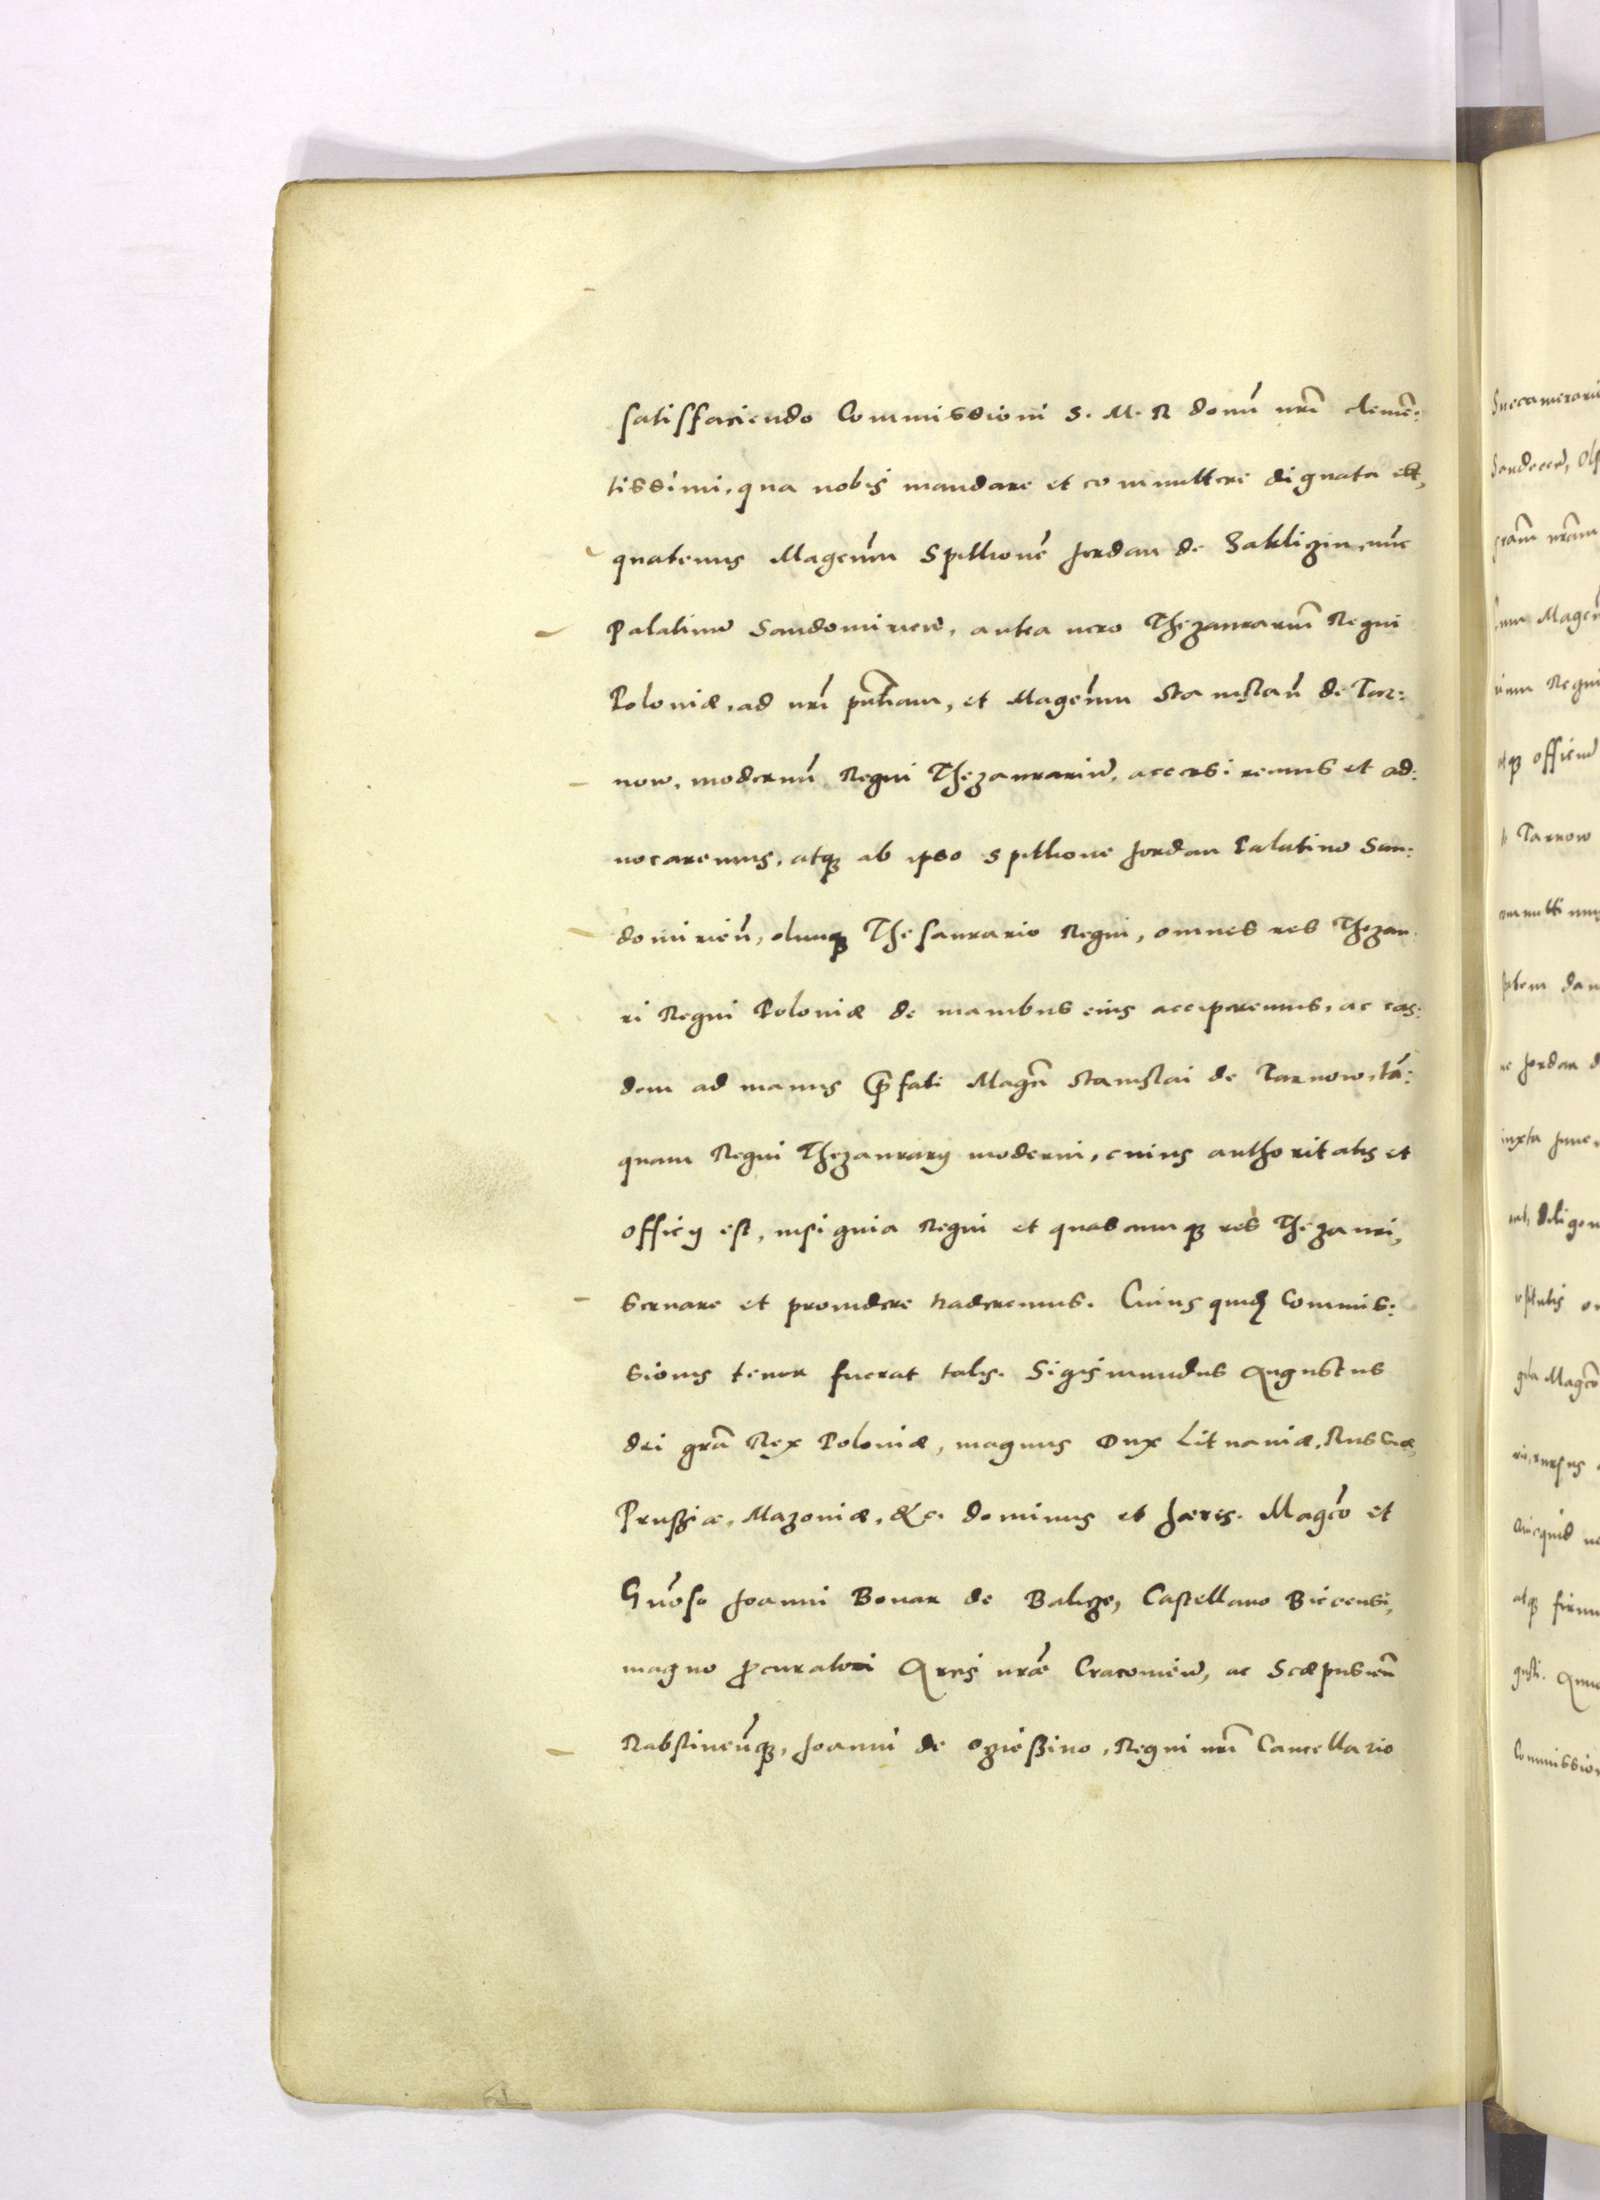 satisfaciendo Commissioni S. M. R donū nrī clemē:
tissimi, qua nobis mandare et committere dignata est,
quatenus Magcūm Spitkonē Jordan de Zakliczin, nūc
Palatinū Sandomirieñ, antea uero Thezaurariūm Regni
Poloniæ, ad nrī pntiam, et Magcūm Stanislaū de Tar:
now, modernū Regni Thezaurariū, accersiremus et ad:
uocaremus, atq3 ab ipso Spitkone Jordan Palatino San:
domirieñ, olimq3 Thesaurario Regni, omnes res Thezau:
ri Regni Poloniæ de manibus eius acciperemus, ac eas:
dem ad manus p̄fati Magcī Stanislai de Tarnow, tā:
quam Regni Thezaurarÿ moderni, cuius authoritatis et
officÿ est, insignia Regni et quascunq3 res Thezauri,
seruare et prouidere traderemus. Cuius quid3 Commis:
sionis tenor fuerat talis. Sigismundus Augustus
dei grā Rex Poloniæ, magnus Dux Lituaniæ, Russiæ,
Prußiæ, Mazouiæ, &c. dominus et hæres. Magcō et
Gnōso Joanni Bonar de Balicze, Castellano Biecensi,
magno p̄curatori Arcis nrāe Cracouieñ, ac Scæpusieñ
Rabstineñq3, Joanni de Oczießino, Regni nrī Cancellario
Succamerario
Sandeceñ,
grām nrām
Magcū
Regni
atq3 officiū
Tarnow
Jordan d
iuxta
Magcō
atq3 firm
Commission